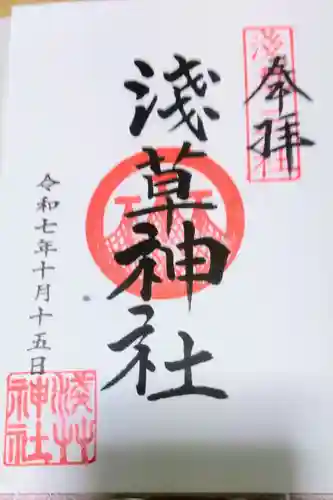 奉拝
浅草神社
淺草神社
令和七年十月十五日
淺草神社